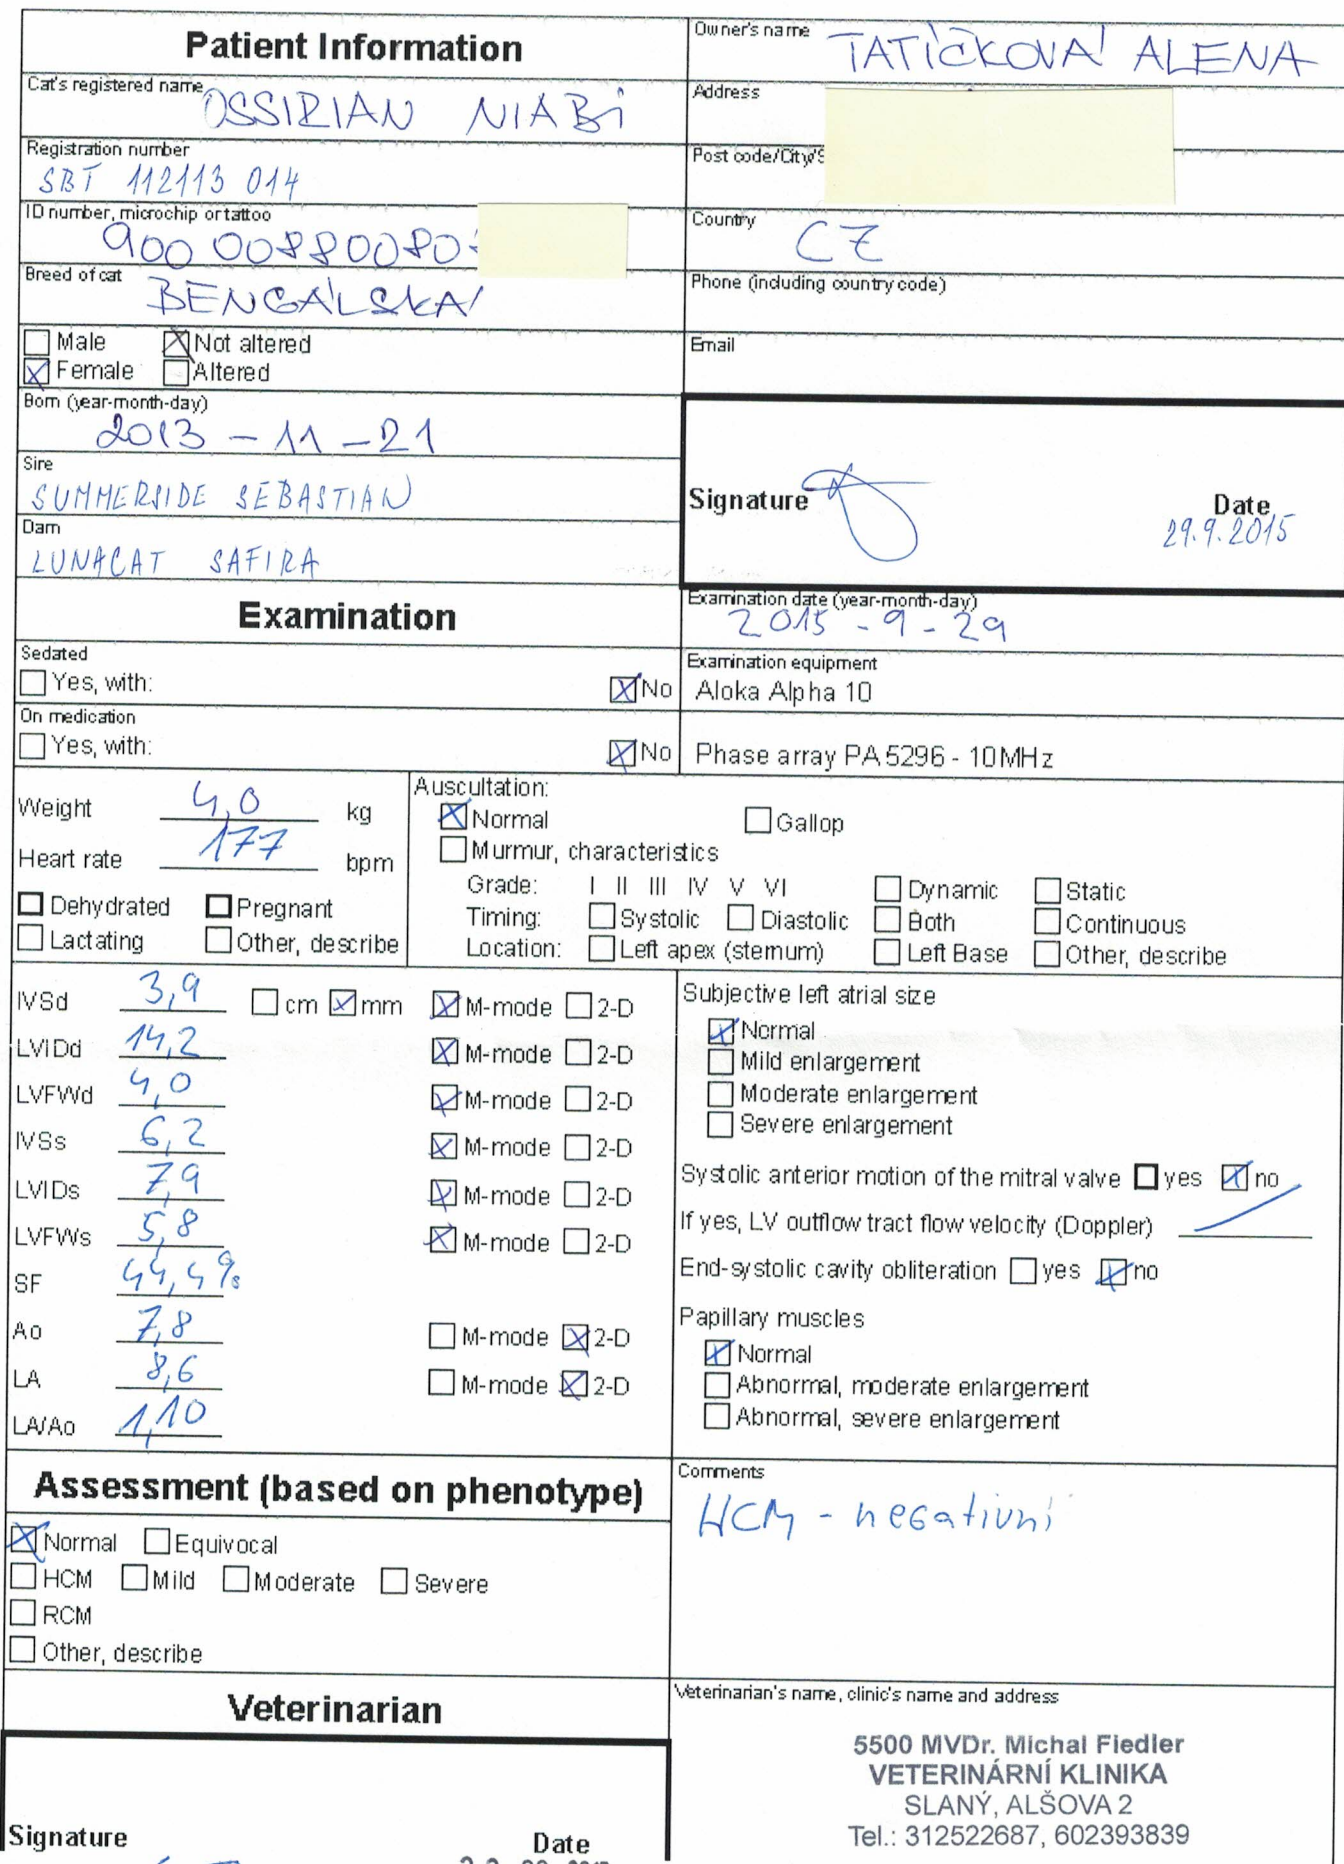 Patient Information
Owner's name TATIČKOVÁ ALENA
Cat's registered name OSSIRIAN NIABI
Address
Registration number
SBT 112113 014
Post code/City/S
ID number, microchip or tattoo
900 00880080
Country CZ
Breed of cat BENGÁLSKÁ
Phone (including country code)
Male Not altered
Female Altered
Email
Born (year-month-day)
2013 - 11 - 21
Sire
SUMMERSIDE SEBASTIAN
Dam
LUNACAT SAFIRA
Signature Date
29.9.2015
Examination
Examination date (year-month-day)
2015 - 9 - 29
Sedated
Yes, with: No
Examination equipment
Aloka Alpha 10
On medication
Yes, with: No
Phase array PA 5296 - 10MHz
Weight 4,0 kg
Heart rate 177 bpm
Dehydrated Pregnant
Lactating Other, describe
Auscultation:
Normal Gallop
Murmur, characteristics
Grade: I II III IV V VI Dynamic Static
Timing: Systolic Diastolic Both Continuous
Location: Left apex (sternum) Left Base Other, describe
IVSd 3,9 cm mm M-mode 2-D
LVIDd 14,2 M-mode 2-D
LVFWd 4,0 M-mode 2-D
IVSs 6,2 M-mode 2-D
LVIDs 7,9 M-mode 2-D
LVFWs 5,8 M-mode 2-D
SF 44,4%
Ao 7,8 M-mode 2-D
LA 8,6 M-mode 2-D
LA/Ao 1,10
Subjective left atrial size
Normal
Mild enlargement
Moderate enlargement
Severe enlargement
Systolic anterior motion of the mitral valve yes no
If yes, LV outflow tract flow velocity (Doppler)
End-systolic cavity obliteration yes no
Papillary muscles
Normal
Abnormal, moderate enlargement
Abnormal, severe enlargement
Assessment (based on phenotype)
Normal Equivocal
HCM Mild Moderate Severe
RCM
Other, describe
Comments
HCM - negativní
Veterinarian
Signature Date
Veterinarian's name, clinic's name and address
5500 MVDr. Michal Fiedler
VETERINÁRNÍ KLINIKA
SLANÝ, ALŠOVA 2
Tel.: 312522687, 602393839